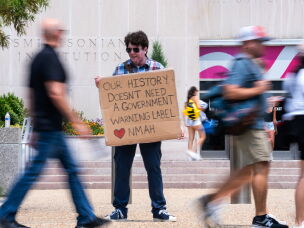 SMITHSONIAN
INSTITUTION
OUR HISTORY
DOESN'T NEED
A GOVERNMENT
WARNING LABEL
NMAH